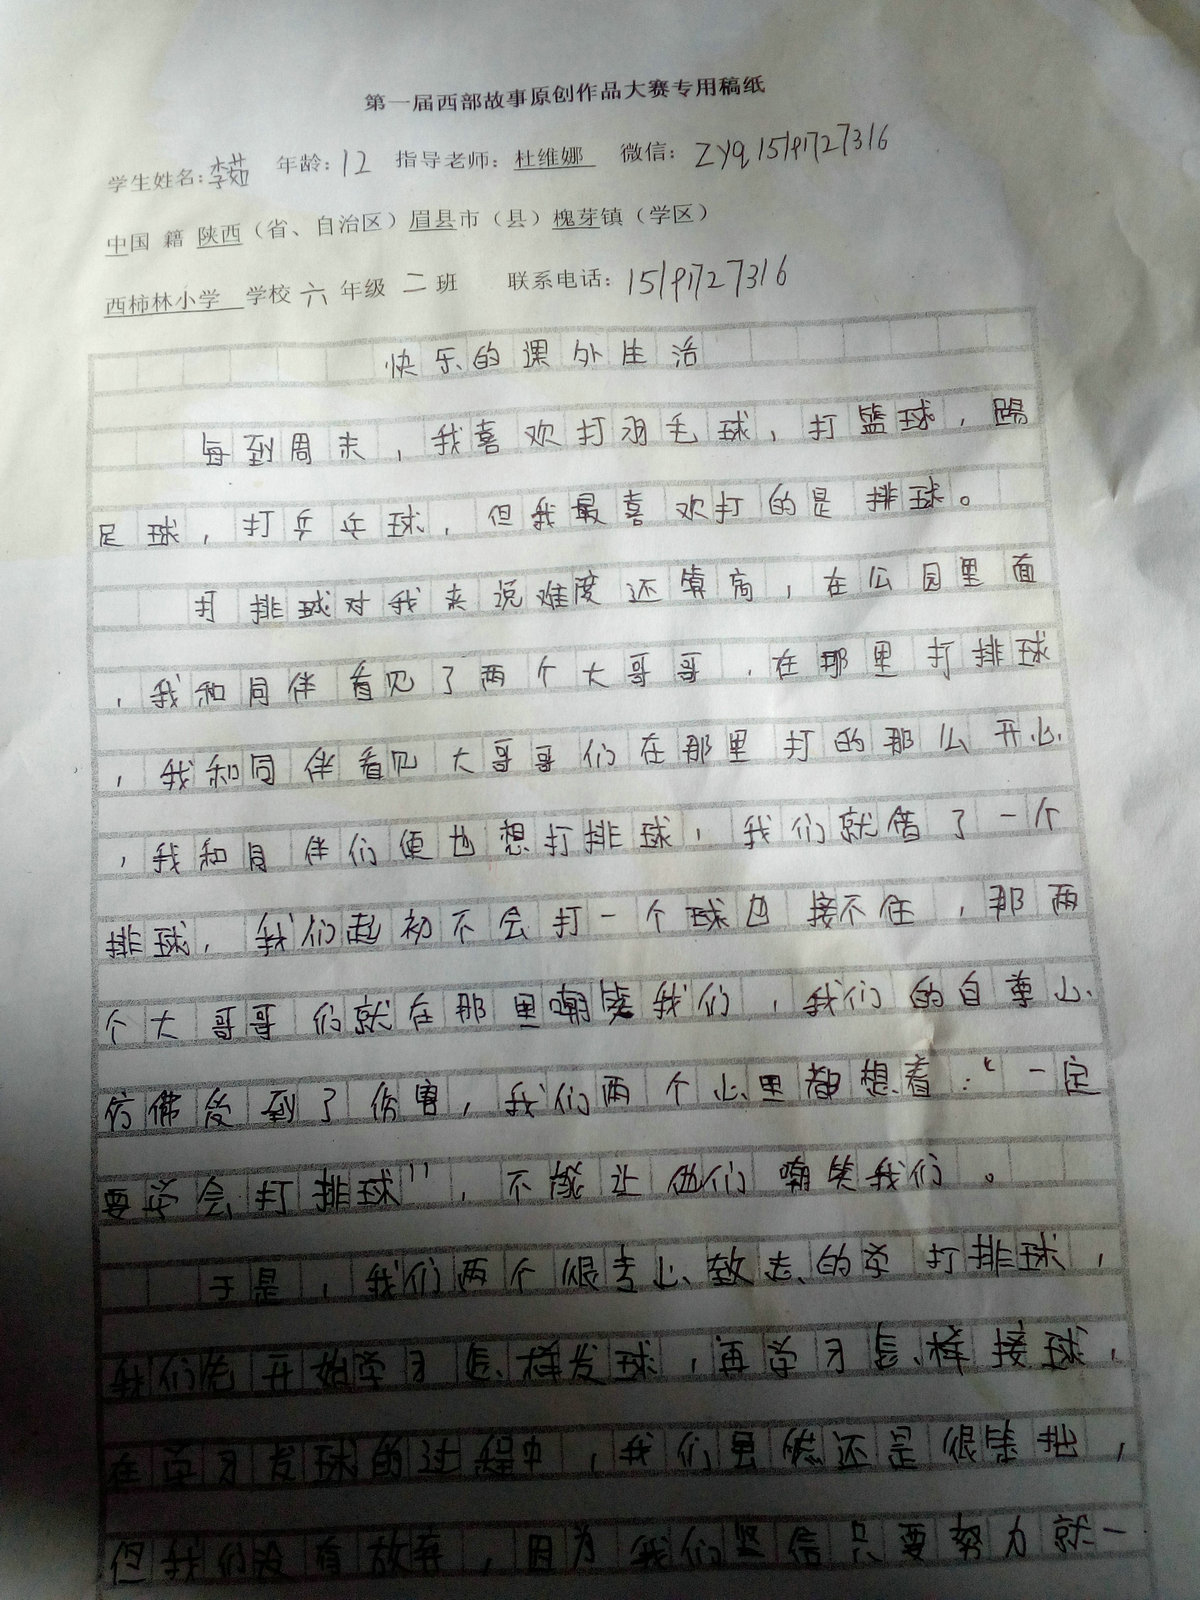 第一届西部故事原创作品大赛专用稿纸
学生姓名:李茹 年龄:12 指导老师:杜维娜 微信:ZYq15191727316
中国 籍 陕西（省、自治区）眉县市（县）槐芽镇（学区）
西柿林小学 学校 六 年级 二 班 联系电话:15191727316
快乐的课外生活
每到周末，我喜欢打羽毛球，打篮球，踢
足球，打乒乓球，但我最喜欢打的是排球。
打排球对我来说难度还算高，在公园里面
，我和同伴看见了两个大哥哥，在那里打排球
，我和同伴看见大哥哥们在那里打的那么开心
，我和同伴们便也想打排球，我们就借了一个
排球，我们起初不会打一个球也接不住，那两
个大哥哥们就在那里嘲笑我们，我们的自尊心
仿佛受到了伤害，我们两个心里都想着：“一定
要学会打排球”，不能让他们嘲笑我们。
于是，我们两个很专心致志的学打排球，
我们先开始学习怎样发球，再学习怎样接球，
在学习发球的过程中，我们虽然还是很笨拙，
但我们没有放弃，因为我们坚信只要努力就一